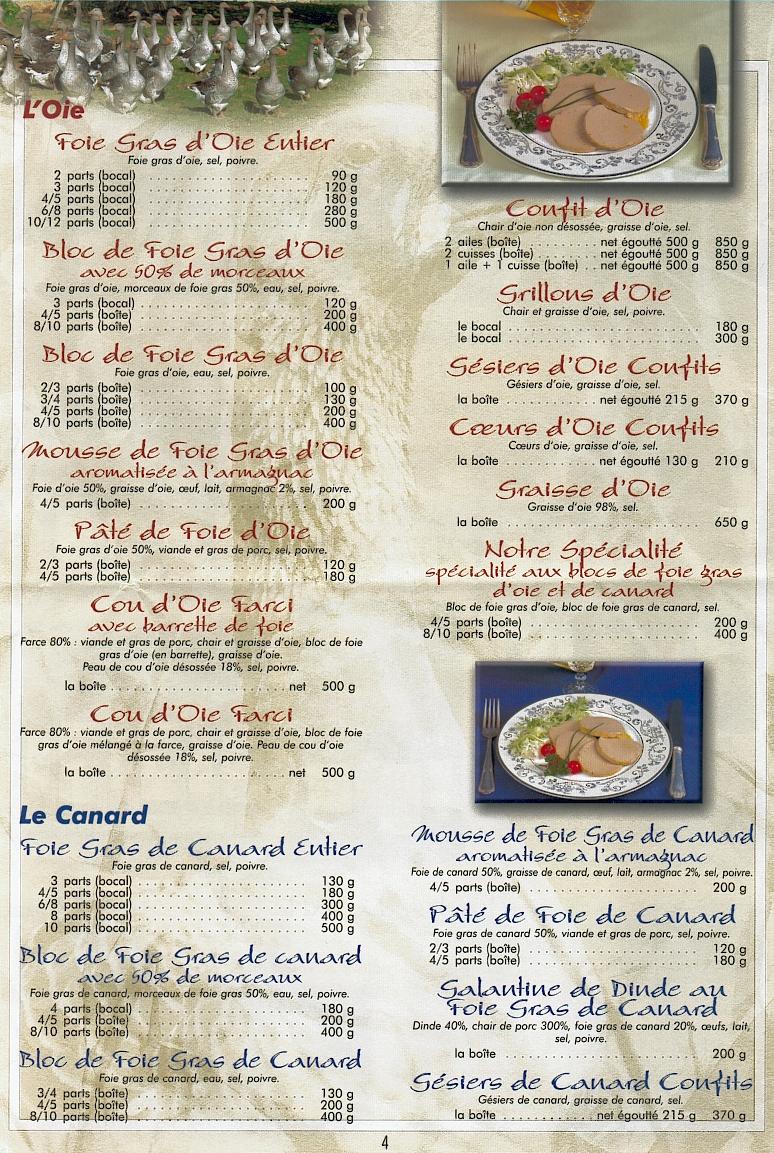 L'Oie
Foie Gras d'Oie Entier
Foie gras d'oie, sel, poivre.
2 parts (bocal) 90 g
3 parts (bocal) 120 g
4/5 parts (bocal) 180 g
6/8 parts (bocal) 280 g
10/12 parts (bocal) 500 g
Bloc de Foie Gras d'Oie
avec 50% de morceaux
Foie gras d'oie, morceaux de foie gras 50%, eau, sel, poivre.
3 parts (bocal) 120 g
4/5 parts (boîte) 200 g
8/10 parts (boîte) 400 g
Bloc de Foie Gras d'Oie
Foie gras d'oie, eau, sel, poivre.
2/3 parts (boîte) 100 g
3/4 parts (boîte) 130 g
4/5 parts (boîte) 200 g
8/10 parts (boîte) 400 g
Mousse de Foie Gras d'Oie
aromatisée à l'armagnac
Foie d'oie 50%, graisse d'oie, œuf, lait, armagnac 2%, sel, poivre.
4/5 parts (boîte) 200 g
Pâté de Foie d'Oie
Foie gras d'oie 50%, viande et gras de porc, sel, poivre.
2/3 parts (boîte) 120 g
4/5 parts (boîte) 180 g
Cou d'Oie Farci
avec barrette de foie
Farce 80% : viande et gras de porc, chair et graisse d'oie, bloc de foie
gras d'oie (en barrette), graisse d'oie.
Peau de cou d'oie désossée 18%, sel, poivre.
la boîte net 500 g
Cou d'Oie Farci
Farce 80% : viande et gras de porc, chair et graisse d'oie, bloc de foie
gras d'oie mélangé à la farce, graisse d'oie. Peau de cou d'oie
désossée 18%, sel, poivre.
la boîte net 500 g
Confit d'Oie
Chair d'oie non désossée, graisse d'oie, sel.
2 ailes (boîte) net égoutté 500 g 850 g
2 cuisses (boîte) net égoutté 500 g 850 g
1 aile + 1 cuisse (boîte) net égoutté 500 g 850 g
Grillons d'Oie
Chair et graisse d'oie, sel, poivre.
le bocal 180 g
le bocal 300 g
Gésiers d'Oie Confits
Gésiers d'oie, graisse d'oie, sel.
la boîte net égoutté 215 g 370 g
Cœurs d'Oie Confits
Cœurs d'oie, graisse d'oie, sel.
la boîte net égoutté 130 g 210 g
Graisse d'Oie
Graisse d'oie 98%, sel.
la boîte 650 g
Notre Spécialité
spécialité aux blocs de foie gras
d'oie et de canard
Bloc de foie gras d'oie, bloc de foie gras de canard, sel.
4/5 parts (boîte) 200 g
8/10 parts (boîte) 400 g
Le Canard
Foie Gras de Canard Entier
Foie gras de canard, sel, poivre.
3 parts (bocal) 130 g
4/5 parts (bocal) 180 g
6/8 parts (bocal) 300 g
8 parts (bocal) 400 g
10 parts (bocal) 500 g
Bloc de Foie Gras de canard
avec 50% de morceaux
Foie gras de canard, morceaux de foie gras 50%, eau, sel, poivre.
4 parts (bocal) 180 g
4/5 parts (boîte) 200 g
8/10 parts (boîte) 400 g
Bloc de Foie Gras de Canard
Foie gras de canard, eau, sel, poivre.
3/4 parts (boîte) 130 g
4/5 parts (boîte) 200 g
8/10 parts (boîte) 400 g
Mousse de Foie Gras de Canard
aromatisée à l'armagnac
Foie de canard 50%, graisse de canard, œuf, lait, armagnac 2%, sel, poivre.
4/5 parts (boîte) 200 g
Pâté de Foie de Canard
Foie gras de canard 50%, viande et gras de porc, sel, poivre.
2/3 parts (boîte) 120 g
4/5 parts (boîte) 180 g
Galantine de Dinde au
Foie Gras de Canard
Dinde 40%, chair de porc 300%, foie gras de canard 20%, œufs, lait,
sel, poivre.
la boîte 200 g
Gésiers de Canard Confits
Gésiers de canard, graisse de canard, sel.
la boîte net égoutté 215 g 370 g
4